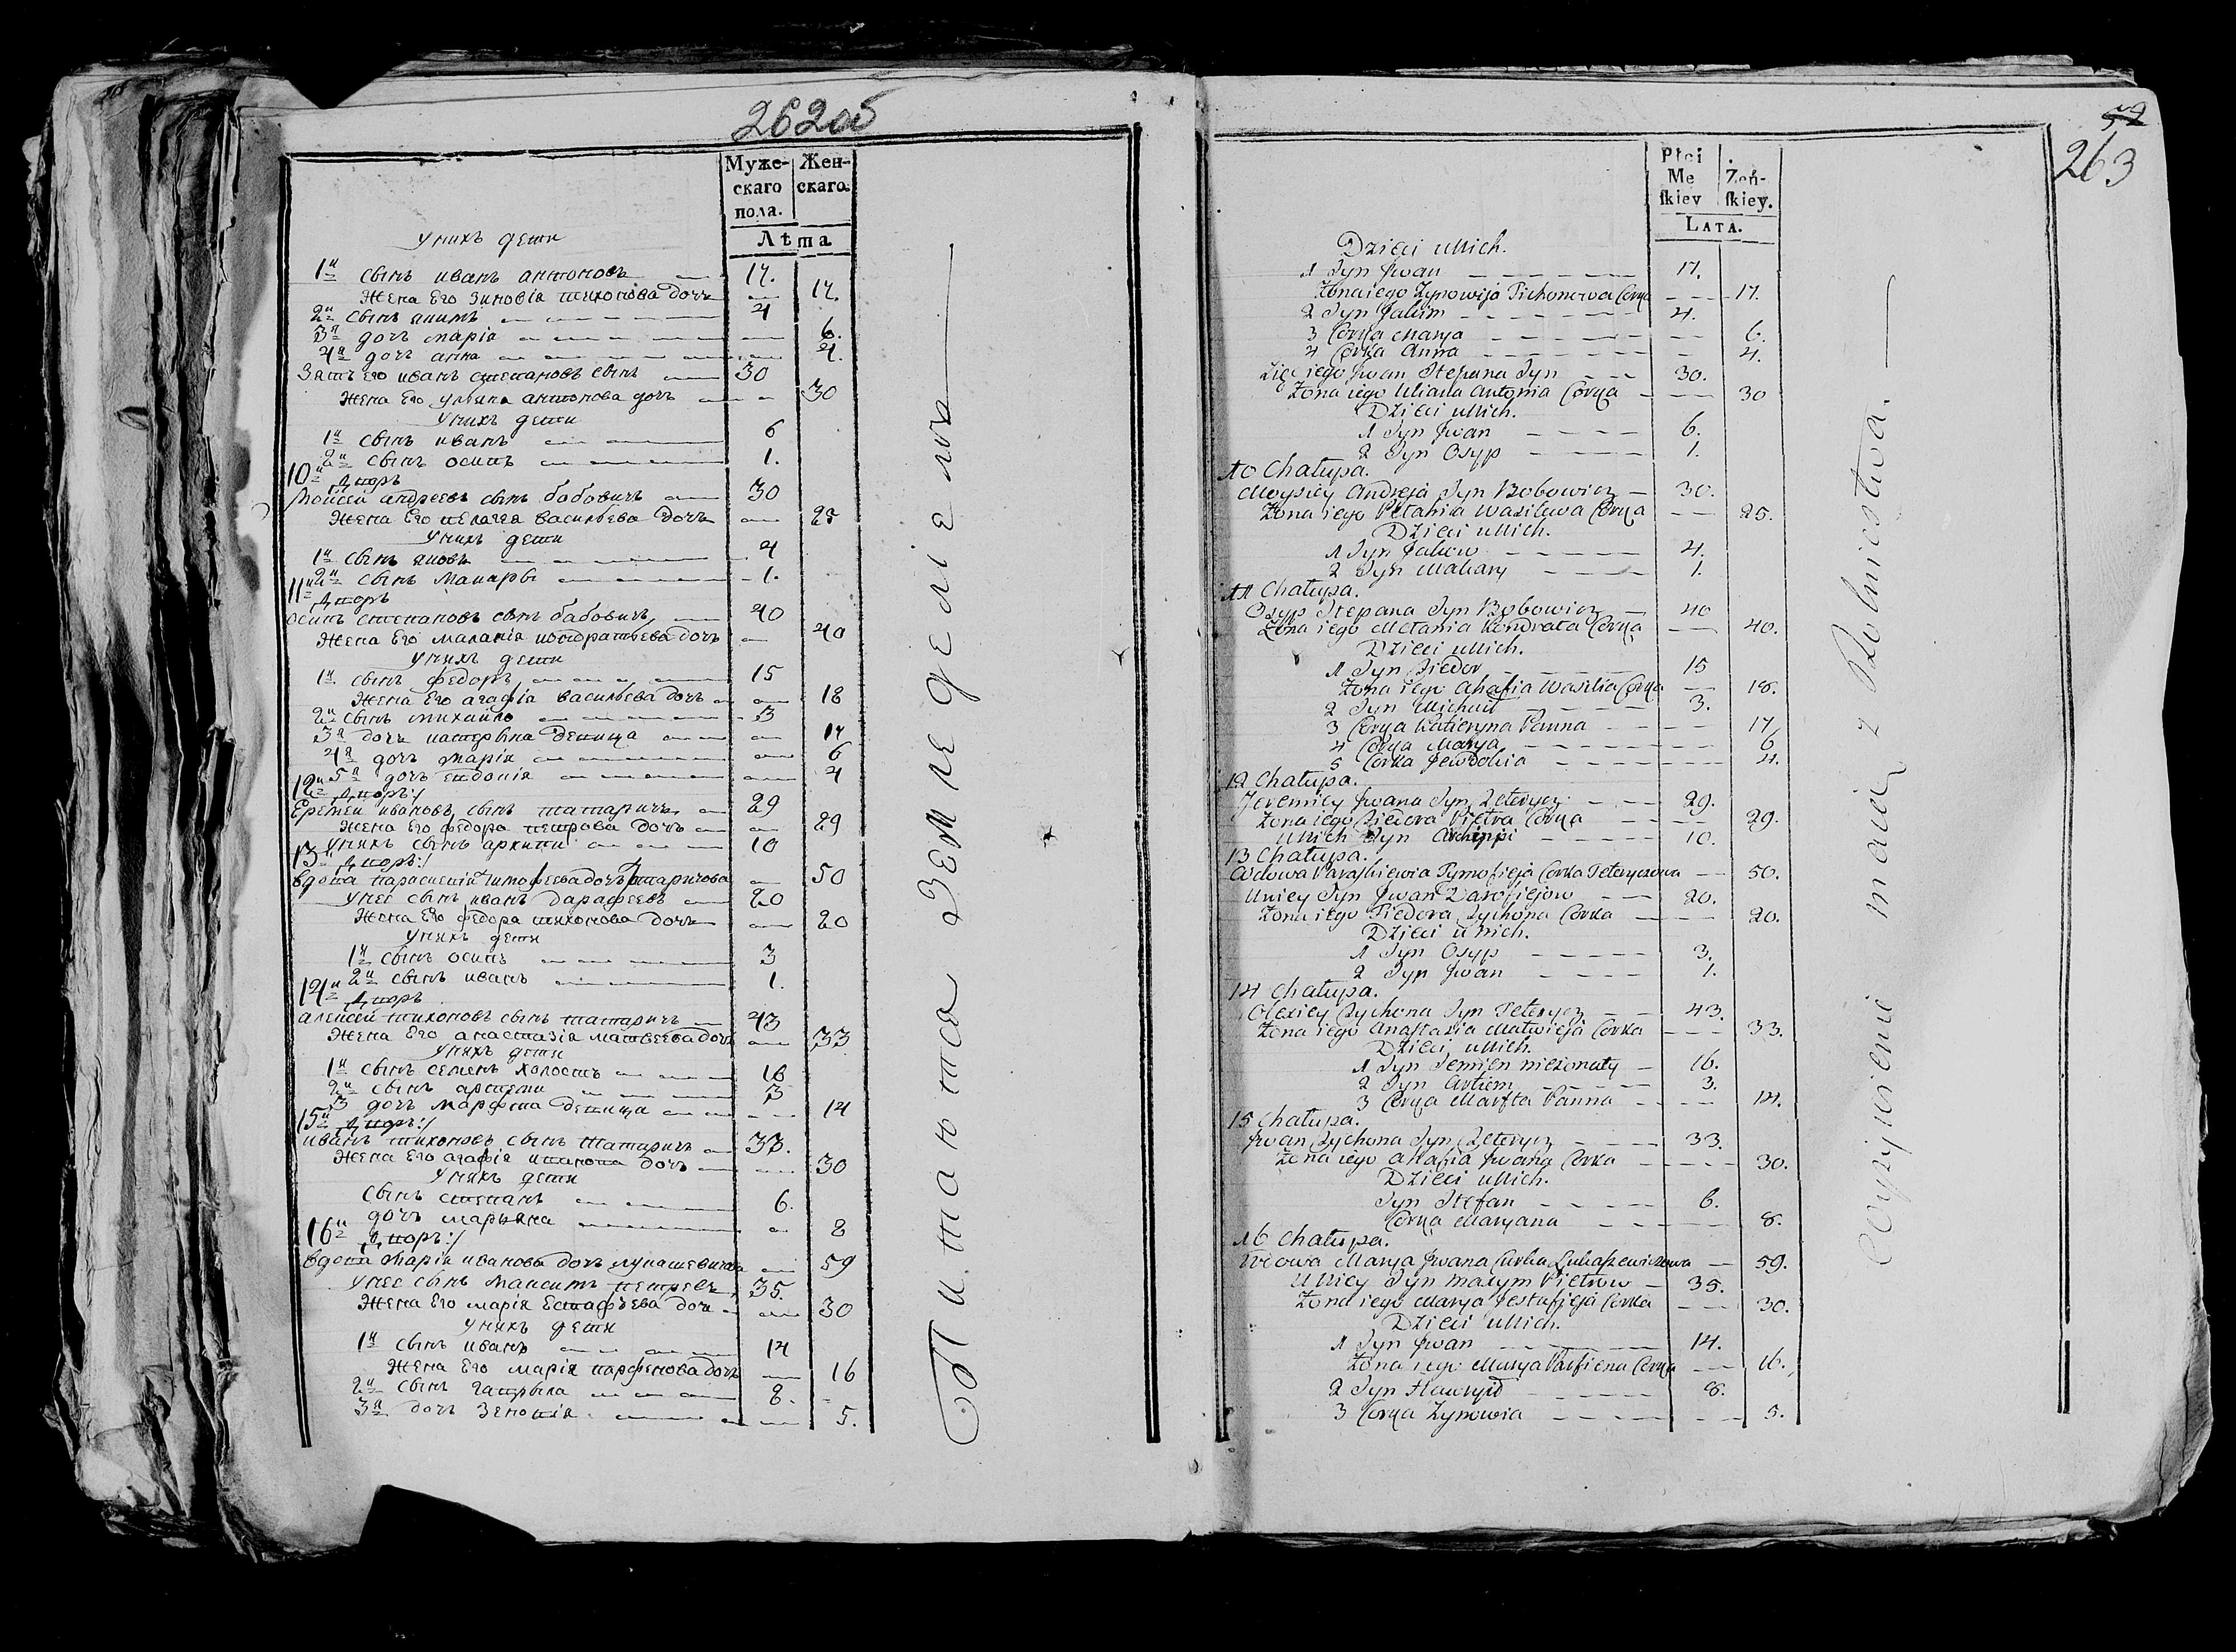 262об
Муже- Жен-
скаго скаго.
пола.
Лѣта
у нихъ дети
1й сынъ иванъ антоновъ 17.
жена Его зиновія тихонова дочъ 17.
2й сынъ якимъ 4
3я дочъ марія 6.
4я дочъ анна 4.
Зять Его иванъ степановъ сынъ 30
жена Его ульяна антонова дочъ 30
у нихъ дети
1й сынъ иванъ 6
2й сынъ осипъ 1.
10й дворъ
Мойсей андреевъ сынъ бабовичъ 30
жена Его пелагея васильева дочъ 25
у нихъ дети
1й сынъ яковъ 4
2й сынъ макаръ 1.
11й дворъ
осипъ степановъ сынъ бабовичъ 40
жена Его маланія кондратьева дочъ 40
у нихъ дети
1й сынъ федоръ 15
жена Его агафія васильева дочъ 18
2й сынъ михайло 3
3я дочъ катерына девица 17
4я дочъ марія 6
5я дочъ евдокія 4
12й дворъ:/
Еремей ивановъ сынъ татаричъ 29
жена Его федора петрова дочъ 29
у нихъ сынъ архипъ 10
13й дворъ:/
вдова параскевія тимофеева дочъ татаричова 50
у нее сынъ иванъ дарафеевъ 20
жена Его федора тихонова дочъ 20
у нихъ дети
1й сынъ осипъ 3
2й сынъ иванъ 1.
14й дворъ
алексей тихоновъ сынъ татаричъ 43
жена Его анастазія матвеева дочъ 33
у нихъ дети
1й сынъ семенъ холостъ 16
2й сынъ артеми 3
3 дочъ марфа девица 14
15й дворъ:/
иванъ тихоновъ сынъ татаричъ 33.
жена Его агафія иванова дочъ 30
у нихъ дети
сынъ степанъ 6.
дочъ марьяна 8
16й дворъ:/
вдова марія иванова дочъ лукашевичова 59
у нее сынъ максимъ петровъ 35.
жена Его марія Естафьева дочъ 30
у нихъ дети
1й сынъ иванъ 14
жена Его марія парфенова дочъ 16
2й сынъ гаврыла 8.
3я дочъ зеновія 5.
Питаютса Земледеліемъ
52
263
Płci
Me Żeń-
ſkiey ſkiey.
LATA.
Dzieci u Nich.
1 Syn Jwan 17.
Żona iego Zynowija Tichonowa Corka 17.
2 Syn Jakim 4.
3 Corka Marya 6.
4 Corka Anna 4.
Zięć iego Jwan Stepana Syn 30.
Żona iego Uliana Antonia Corka 30
Dzieci u Nich.
1 Syn Jwan 6.
2 Syn Osyp 1.
10 Chałupa.
Moysiey Andreja Syn Bobowicz 30.
Żona iego Pełahia Wasilewa Corka 25.
Dzieci u Nich.
1 Syn Jakow 4.
2 Syn Makary 1.
11 Chałupa.
Osyp Stepana Syn Bobowicz 40
Żona iego Mełania Kondrata Corka 40.
Dzieci u Nich.
1 Syn Fiedor 15
Żona iego Ahafia Wasilia Corka 18.
2 Syn Michaił 3.
3 Corka Katieryna Panna 17
4 Corka Marya 6
5 Corka Jewdokia 4.
12 Chałupa.
Jeremiey Jwana Syn Teterycz 29.
Żona iego Fiedora Pietra Corka 29.
U Nich Syn Archippi 10.
13 Chałupa.
Wdowa Paraskiewia Tymofieja Corka Teteryczowa 50.
U niey Syn Jwan Darofiejow 20.
Żona iego Fiedora Tychona Corka 20.
Dzieci u Nich.
1 Syn Osyp 3.
2 Syn Jwan 1.
14 Chałupa.
Olexiey Tychona Syn Teterycz 43.
Żona iego Anastazia Matwieja Corka 33.
Dzieci u Nich.
1 Syn Semien nieżonaty 16.
2 Syn Artiem 3.
3 Corka Marfta Panna 14.
15 Chałupa.
Jwan Tychona Syn Teterycz 33.
Żona iego Ahafia Jwana Corka 30.
Dzieci u Nich.
Syn Stefan 6.
Corka Maryana 8.
16 Chałupa.
Wdowa Marya Jwana Corka Łukaszewiczowa 59.
U Niey Syn Maxym Pietrow 35.
Żona iego Marya Jestafieja Corka 30.
Dzieci u Nich.
1 Syn Jwan 14.
Żona iego Marya Parfiena Corka 16.
2 Syn Hawryił 8.
3 Corka Zynowia 5.
Wyżywienie maią z Rolnictwa.